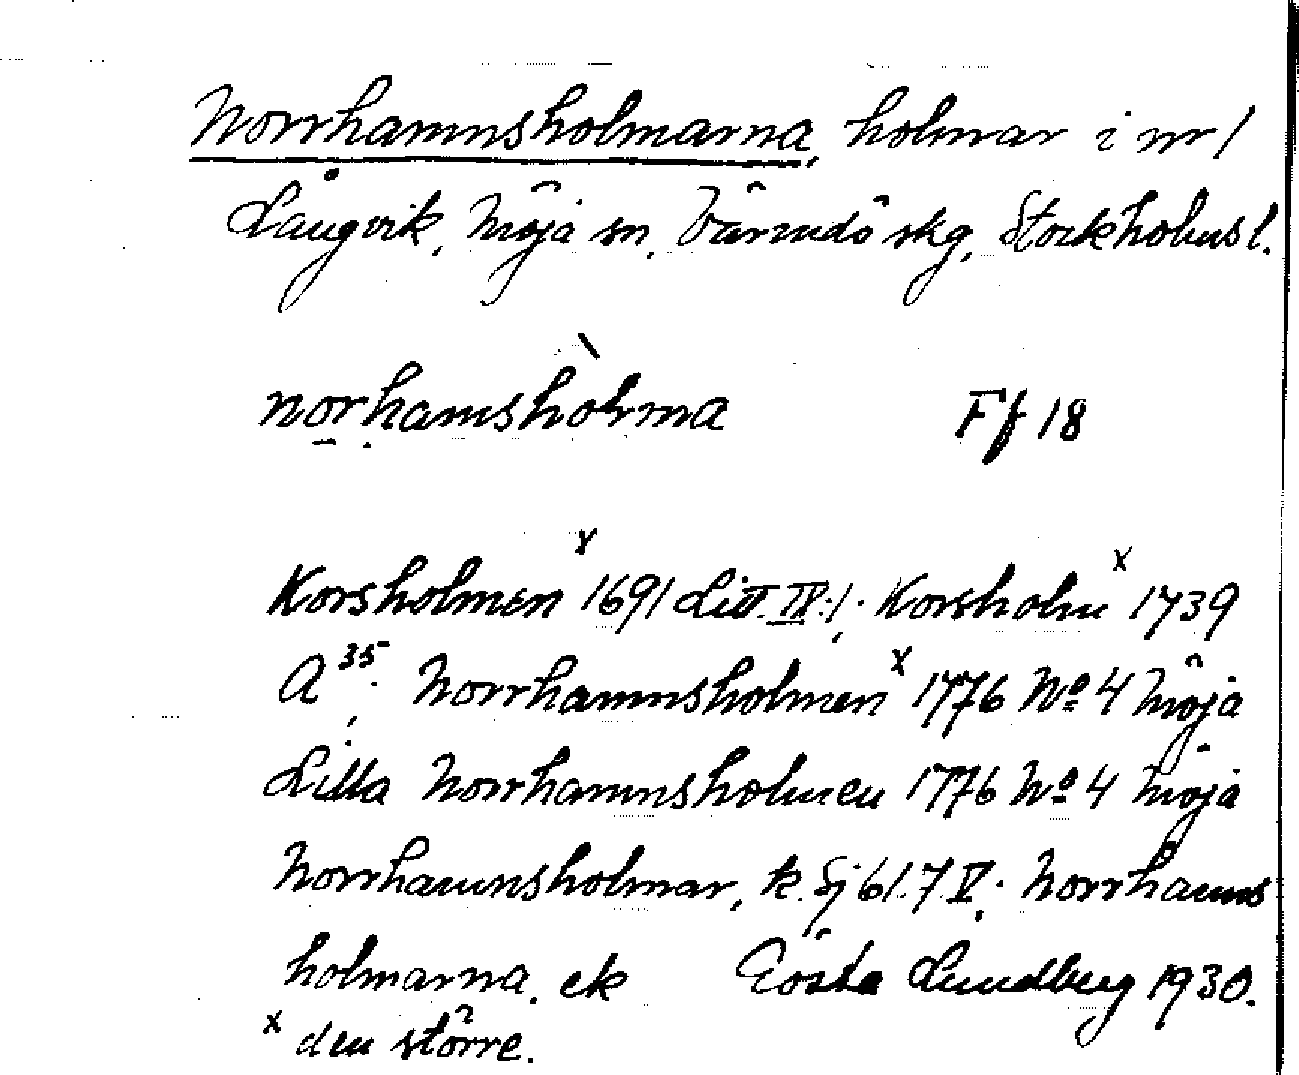 Norrhamnsholmarna, holmar i nr 1
Långvik, Möja sn, Värmdö skg, Stockholms l.
norhamshòlma Ff 18
Korsholmen x 1691 Litt. IV:1; Korsholm x 1739
A 35; Norrhamnsholmen x 1776 No 4 Möja;
Lilla Norrhamnsholmen 1776 No 4 Möja
Norrhamnsholmar, k. Sj 61.7 V; Norrhamns
holmarna, ek Gösta Lundberg 1930.
x den större.